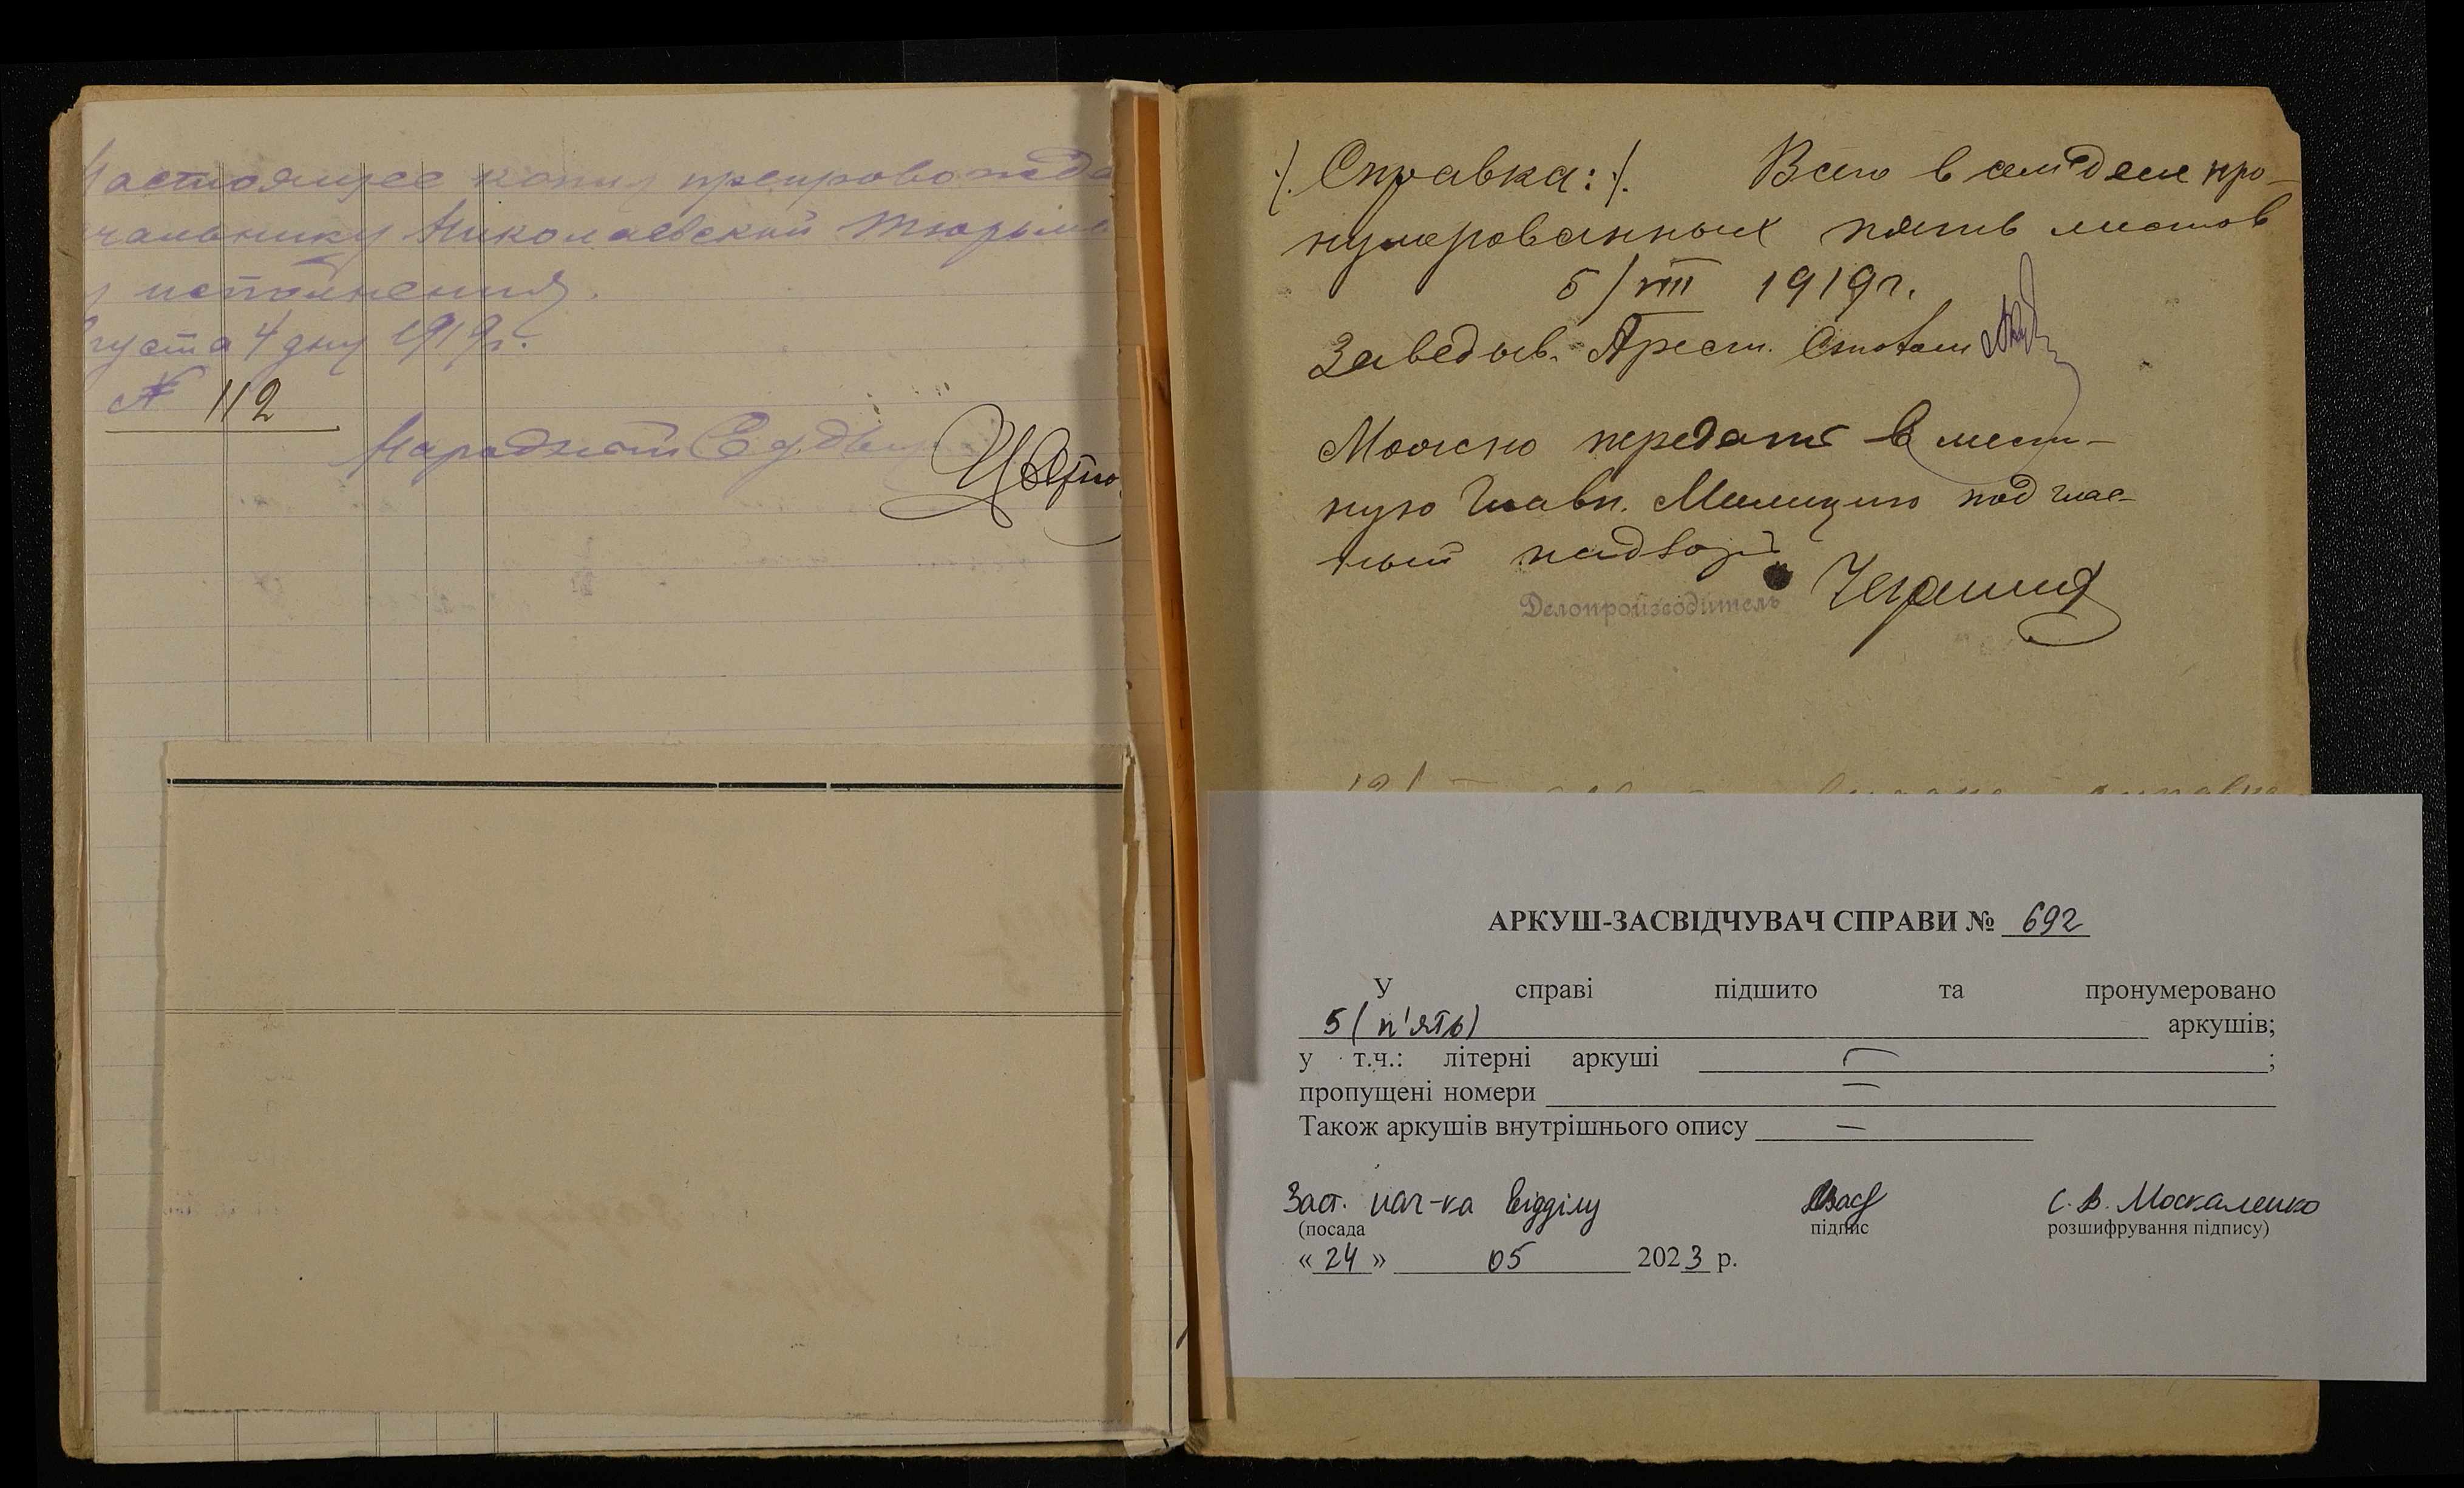 Настоящее копию препровожда
чальнику Николаевской тюрьмы
исполнения.
густа 4 дня 1919 г.
№ 112
Народный Судья
·/. Справка: ·/. Всего в сем деле про-
нумерованных пять листов
5/VIII 1919 г.
Заведыв. Арест. Столом
Можно передать в мест-
ную Главн. Милицию под глас-
ный надзор
Делопроизводитель
АРКУШ-ЗАСВІДЧУВАЧ СПРАВИ № 692
У справі підшито та пронумеровано
5 (п'ять) аркушів;
у т.ч.: літерні аркуші — ;
пропущені номери —
Також аркушів внутрішнього опису —
Заст. нач-ка відділу С.В. Москаленко
(посада підпис розшифрування підпису)
« 24 » 05 2023 р.